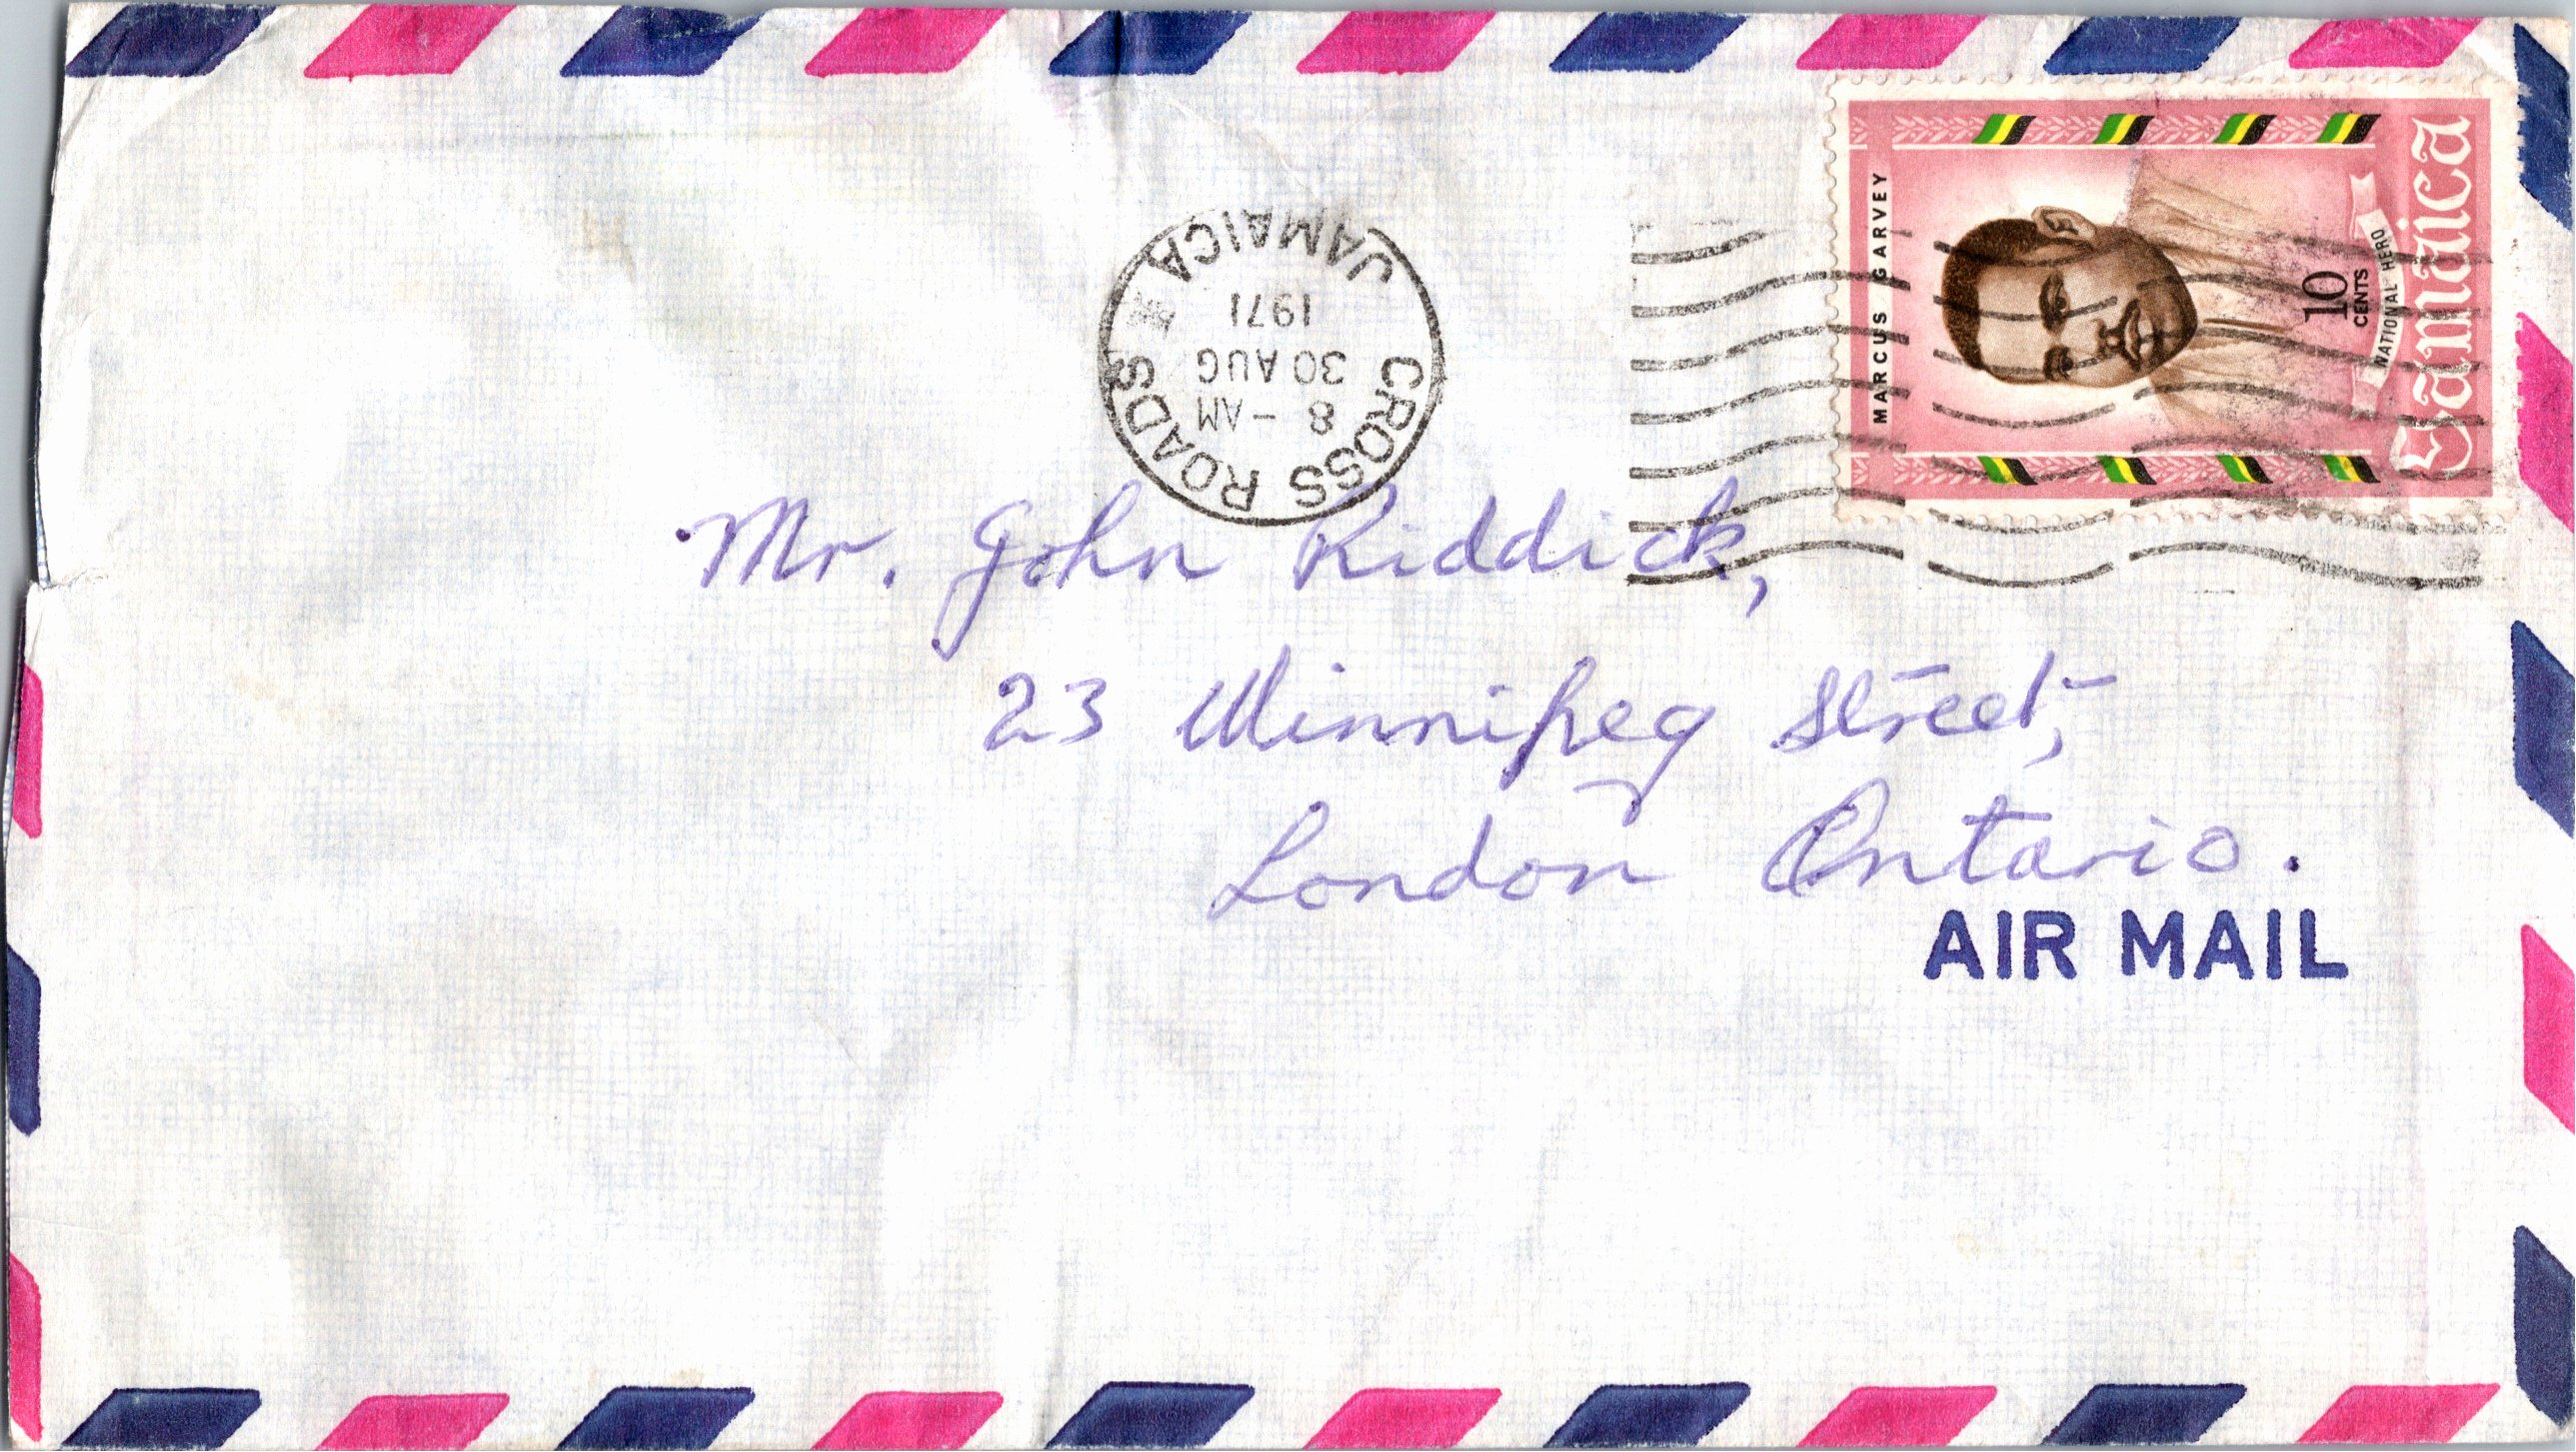 MARCUS GARVEY
10
CENTS
NATIONAL HERO
Jamaica
CROSS ROADS
8 - AM
30 AUG
1971
JAMAICA
Mr. John Riddick,
23 Winnipeg Street,
London Ontario.
AIR MAIL